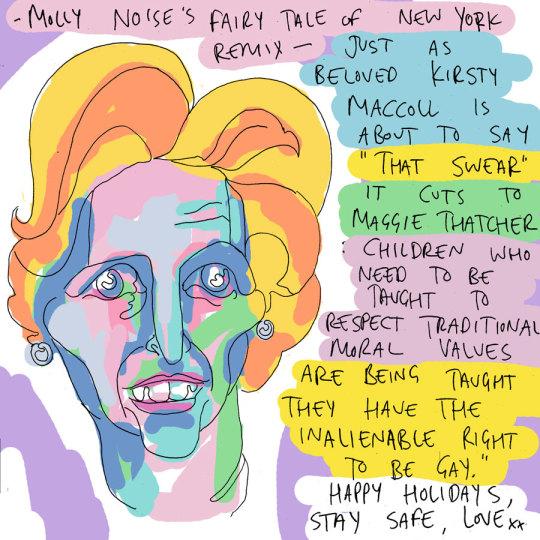 - MOLLY NOISE'S FAIRY TALE OF NEW YORK
REMIX -
JUST AS
BELOVED KIRSTY
MACCOLL IS
ABOUT TO SAY
"THAT SWEAR"
IT CUTS TO
MAGGIE THATCHER
: CHILDREN WHO
NEED TO BE
TAUGHT TO
RESPECT TRADITIONAL
MORAL VALUES
ARE BEING TAUGHT
THEY HAVE THE
INALIENABLE RIGHT
TO BE GAY."
HAPPY HOLIDAYS,
STAY SAFE, LOVE xx